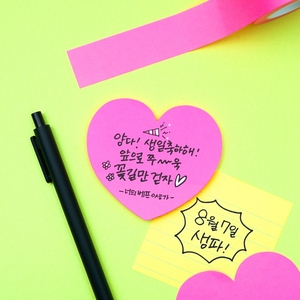 양다! 생일축하해!
앞으로 쭈~~욱
꽃길만 걷자
-너의 베프 아유가-
8월 7일
생파!